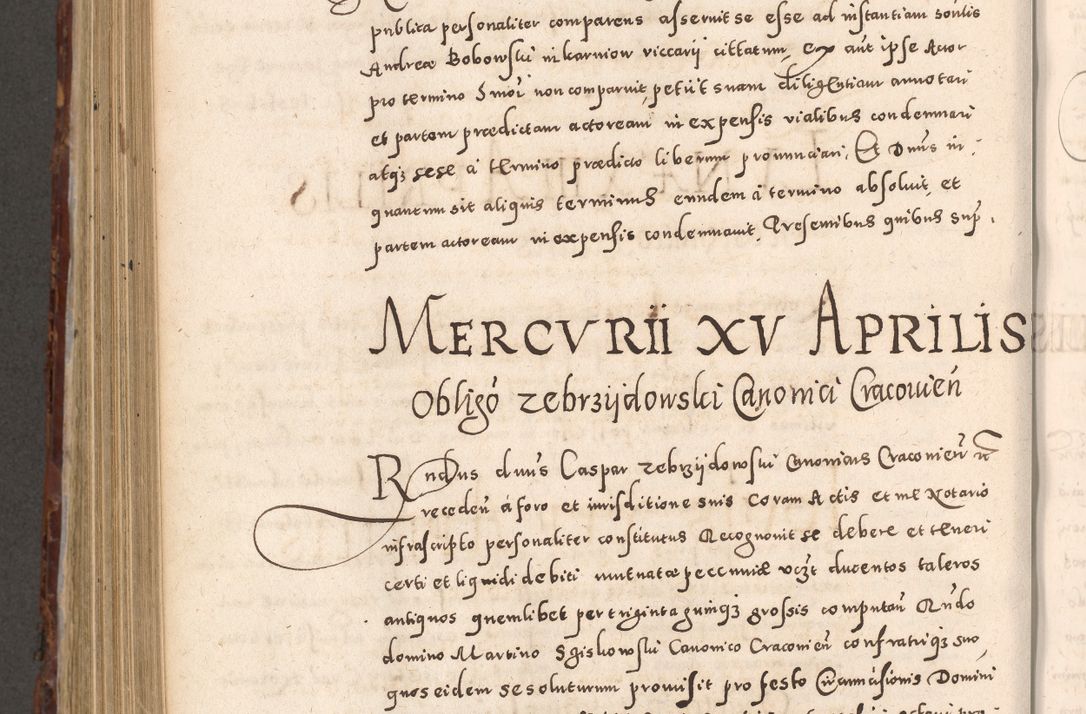 publica personaliter comparens asseruit se esse ad instantiam
Andreæ Bobowski vicarii cittatum, ex aut ipse Actor
pro termino non comparuit, petiit suam diligentiam annotari
et partem prædictam actoream in expensis vialibus condemnari
atq3 sese à termino prædicto liberum pronunciari, Et Dnus in
quantum sit aliquis terminus eundem à termino absoluit, et
partem actoream in expensis condemnauit, Presentibus quibus sup
MERCVRII XV APRILIS
Obligo zebrzijdowski Canonici Cracouien
Rndus dnus Caspar zebrzijdowski Canonicus Cracouien
receden à foro et iurisditione suis Coram Actis et me Notario
infrascripto personaliter constitutus Recognouit se debere et teneri
certi et liquidi debiti mutuatæ peccuniæ vczt ducentos taleros
antiquos quemlibet per triginta quinq3 grossis computan Rndo
domino Martino Canonico Cracouien confratriq3 suo,
quos eidem se soluturum promisit pro festo Circumcisionis Domini